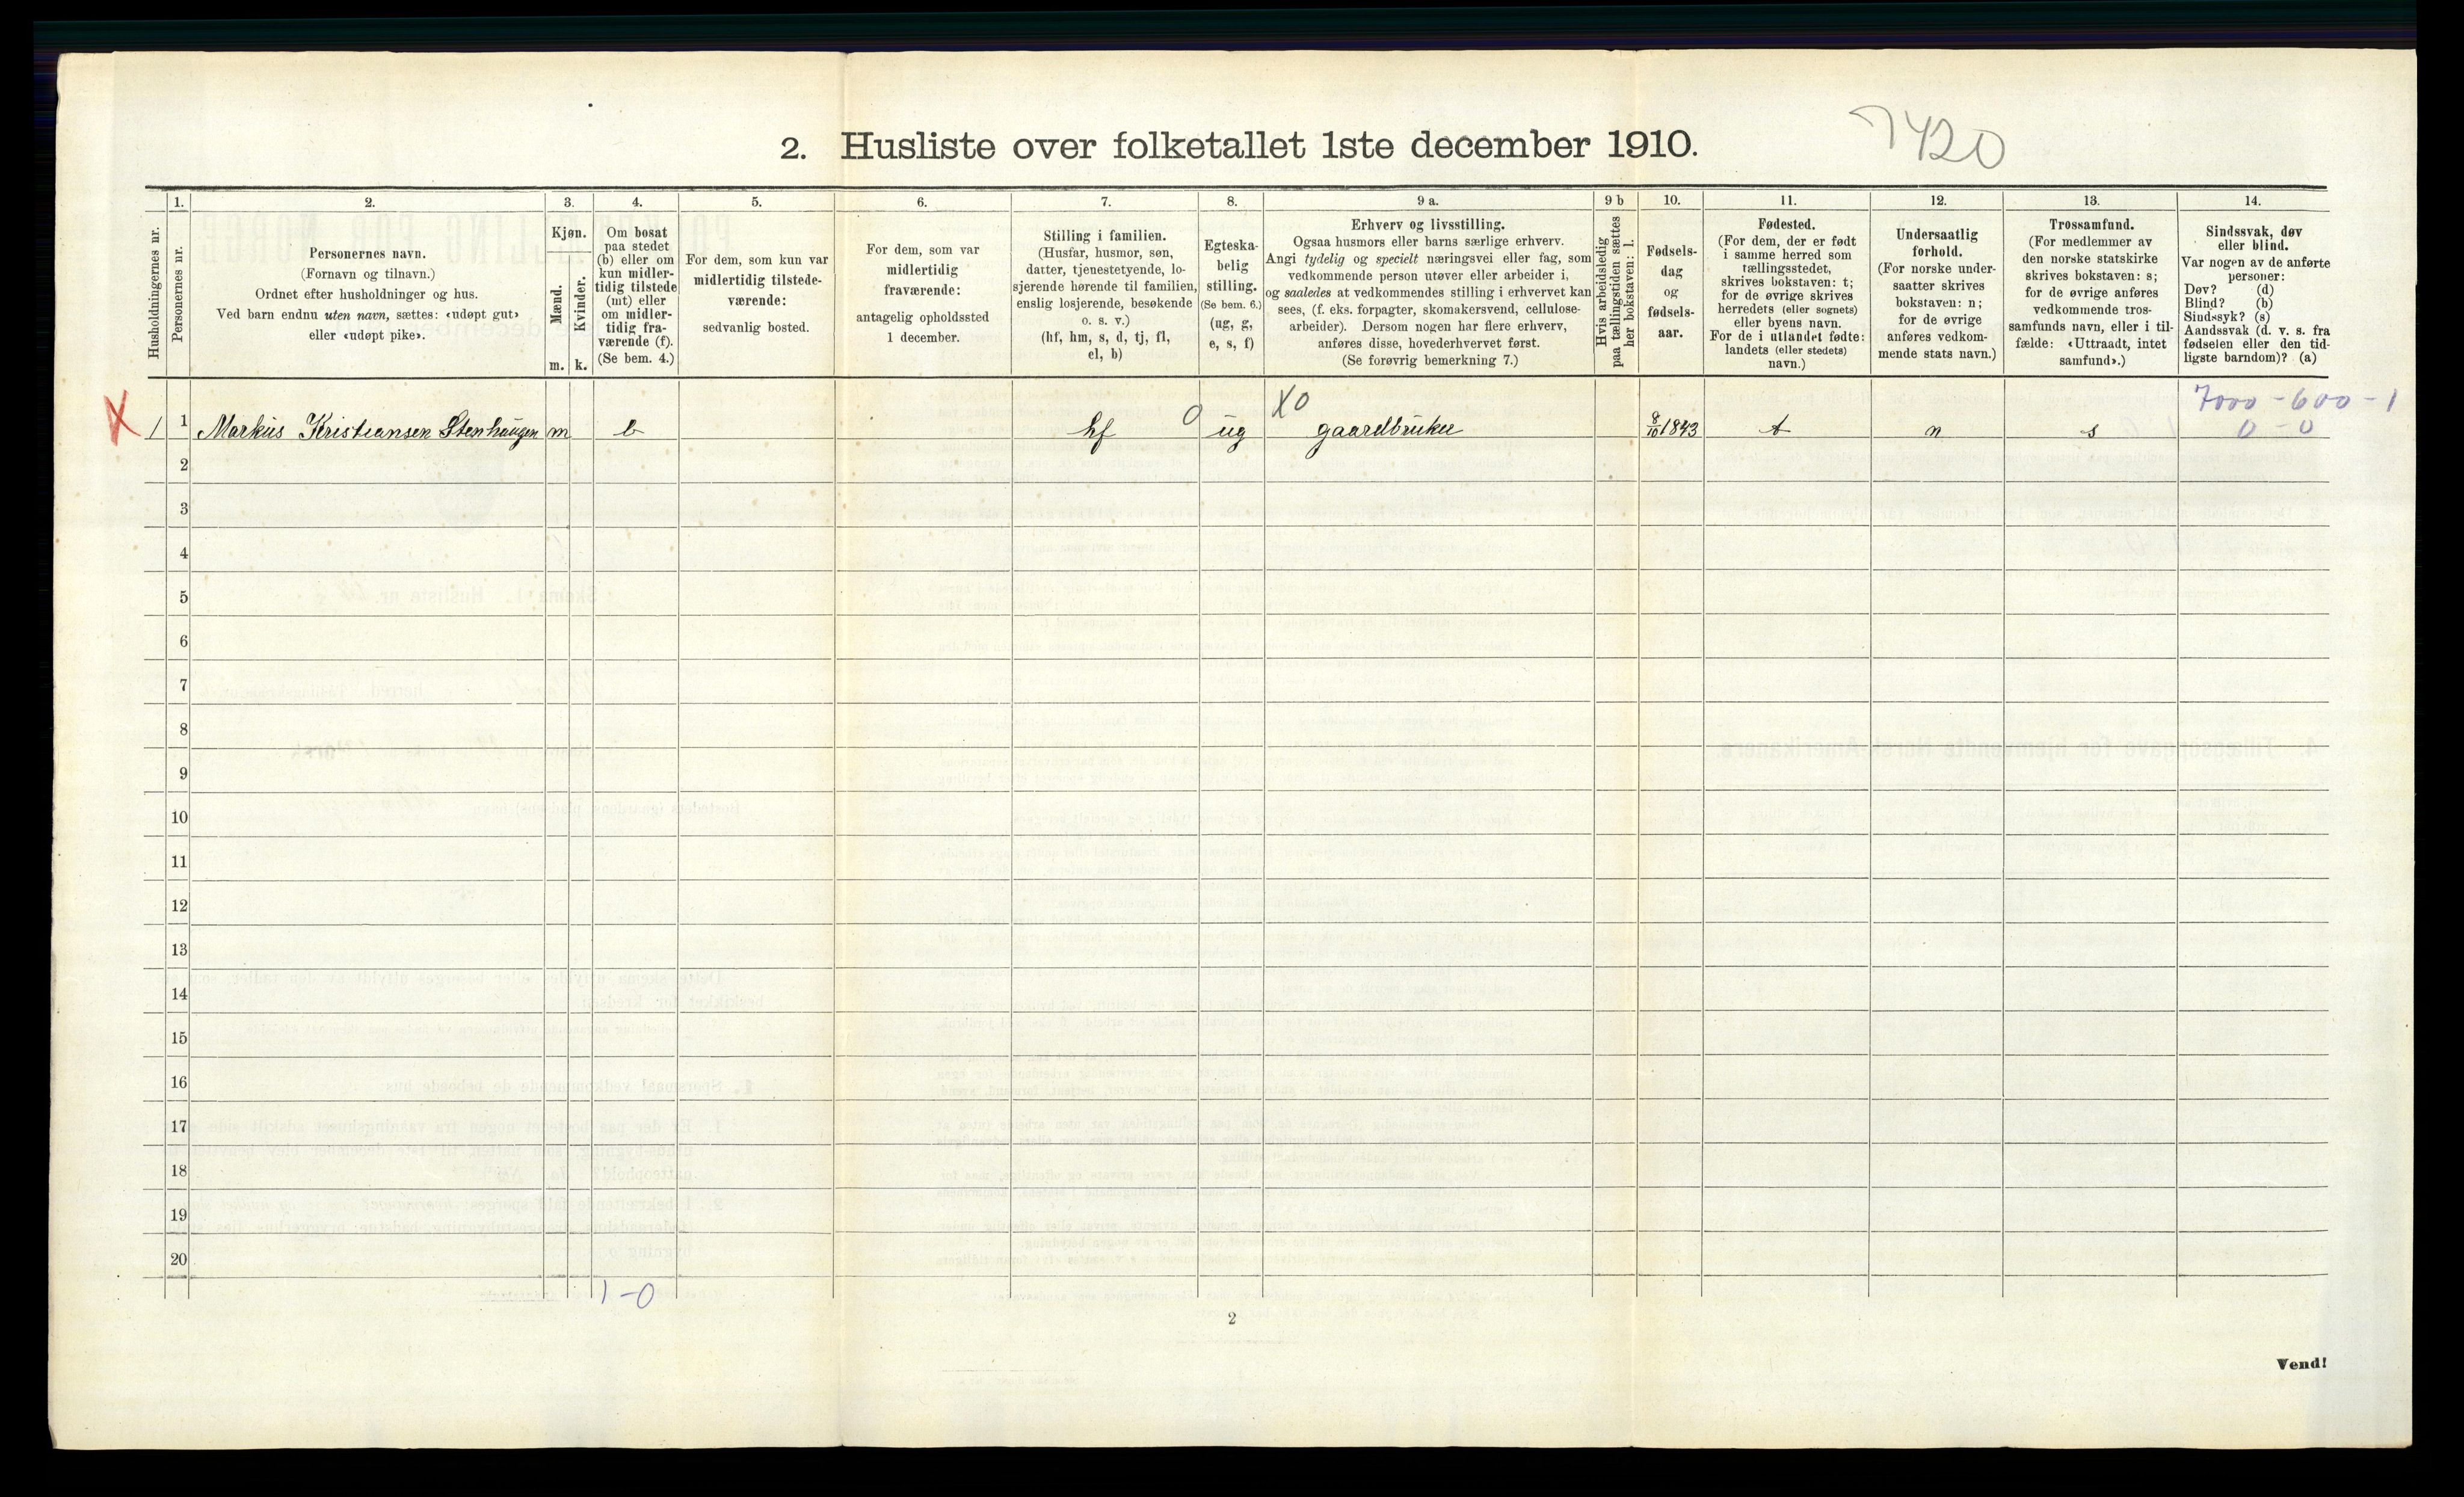 7420
2. Husliste over folketallet 1ste december 1910.
Husholdningernes nr.
1.
Personernes nr.
2.
Personernes navn.
(Fornavn og tilnavn.)
Ordnet efter husholdninger og hus.
Ved barn endnu uten navn, sættes: «udøpt gut»
eller «udøpt pike».
3.
Kjøn.
Mænd.
Kvinder.
m. k.
4.
Om bosat
paa stedet
(b) eller om
kun midler-
tidig tilstede
(mt) eller
om midler-
tidig fra-
værende (f).
(Se bem. 4.)
5.
For dem, som kun var
midlertidig tilstede-
værende:
sedvanlig bosted.
6.
For dem, som var
midlertidig
fraværende:
antagelig opholdssted
1 december.
7.
Stilling i familien.
(Husfar, husmor, søn,
datter, tjenestetyende, lo-
sjerende hørende til familien,
enslig losjerende, besøkende
o. s. v.)
(hf, hm, s, d, tj, fl,
el, b)
8.
Egteska-
belig
stilling.
(Se bem. 6.)
(ug, g,
e, s, f)
9 a.
Erhverv og livsstilling.
Ogsaa husmors eller barns særlige erhverv.
Angi tydelig og specielt næringsvei eller fag, som
vedkommende person utøver eller arbeider i,
og saaledes at vedkommendes stilling i erhvervet kan
sees, (f. eks. forpagter, skomakersvend, cellulose-
arbeider). Dersom nogen har flere erhverv,
anføres disse, hovederhvervet først.
(Se forøvrig bemerkning 7.)
9 b
Hvis arbeidsledig
paa tællingstiden sættes
her bokstaven: l.
10.
Fødsels-
dag
og
fødsels-
aar.
11.
Fødested.
(For dem, der er født
i samme herred som
tællingsstedet,
skrives bokstaven: t;
for de øvrige skrives
herredets (eller sognets)
eller byens navn.
For de i utlandet fødte:
landets (eller stedets)
navn.)
12.
Undersaatlig
forhold.
(For norske under-
saatter skrives
bokstaven: n;
for de øvrige
anføres vedkom-
mende stats navn.)
13.
Trossamfund.
(For medlemmer av
den norske statskirke
skrives bokstaven: s;
for de øvrige anføres
vedkommende tros-
samfunds navn, eller i til-
fælde: «Uttraadt, intet
samfund».)
14.
Sindssvak, døv
eller blind.
Var nogen av de anførte
personer:
Døv? (d)
Blind? (b)
Sindssyk? (s)
Aandssvak (d. v. s. fra
fødselen eller den tid-
ligste barndom)? (a)
X0 7000-600-1
X 1 1 Markus Kristiansen Stenhaugen m b hf 0 ug gaardbruker 8/10 1843 t n s 0-0
2
3
4
5
6
7
8
9
10
11
12
13
14
15
16
17
18
19
20
1-0
2
Vend!